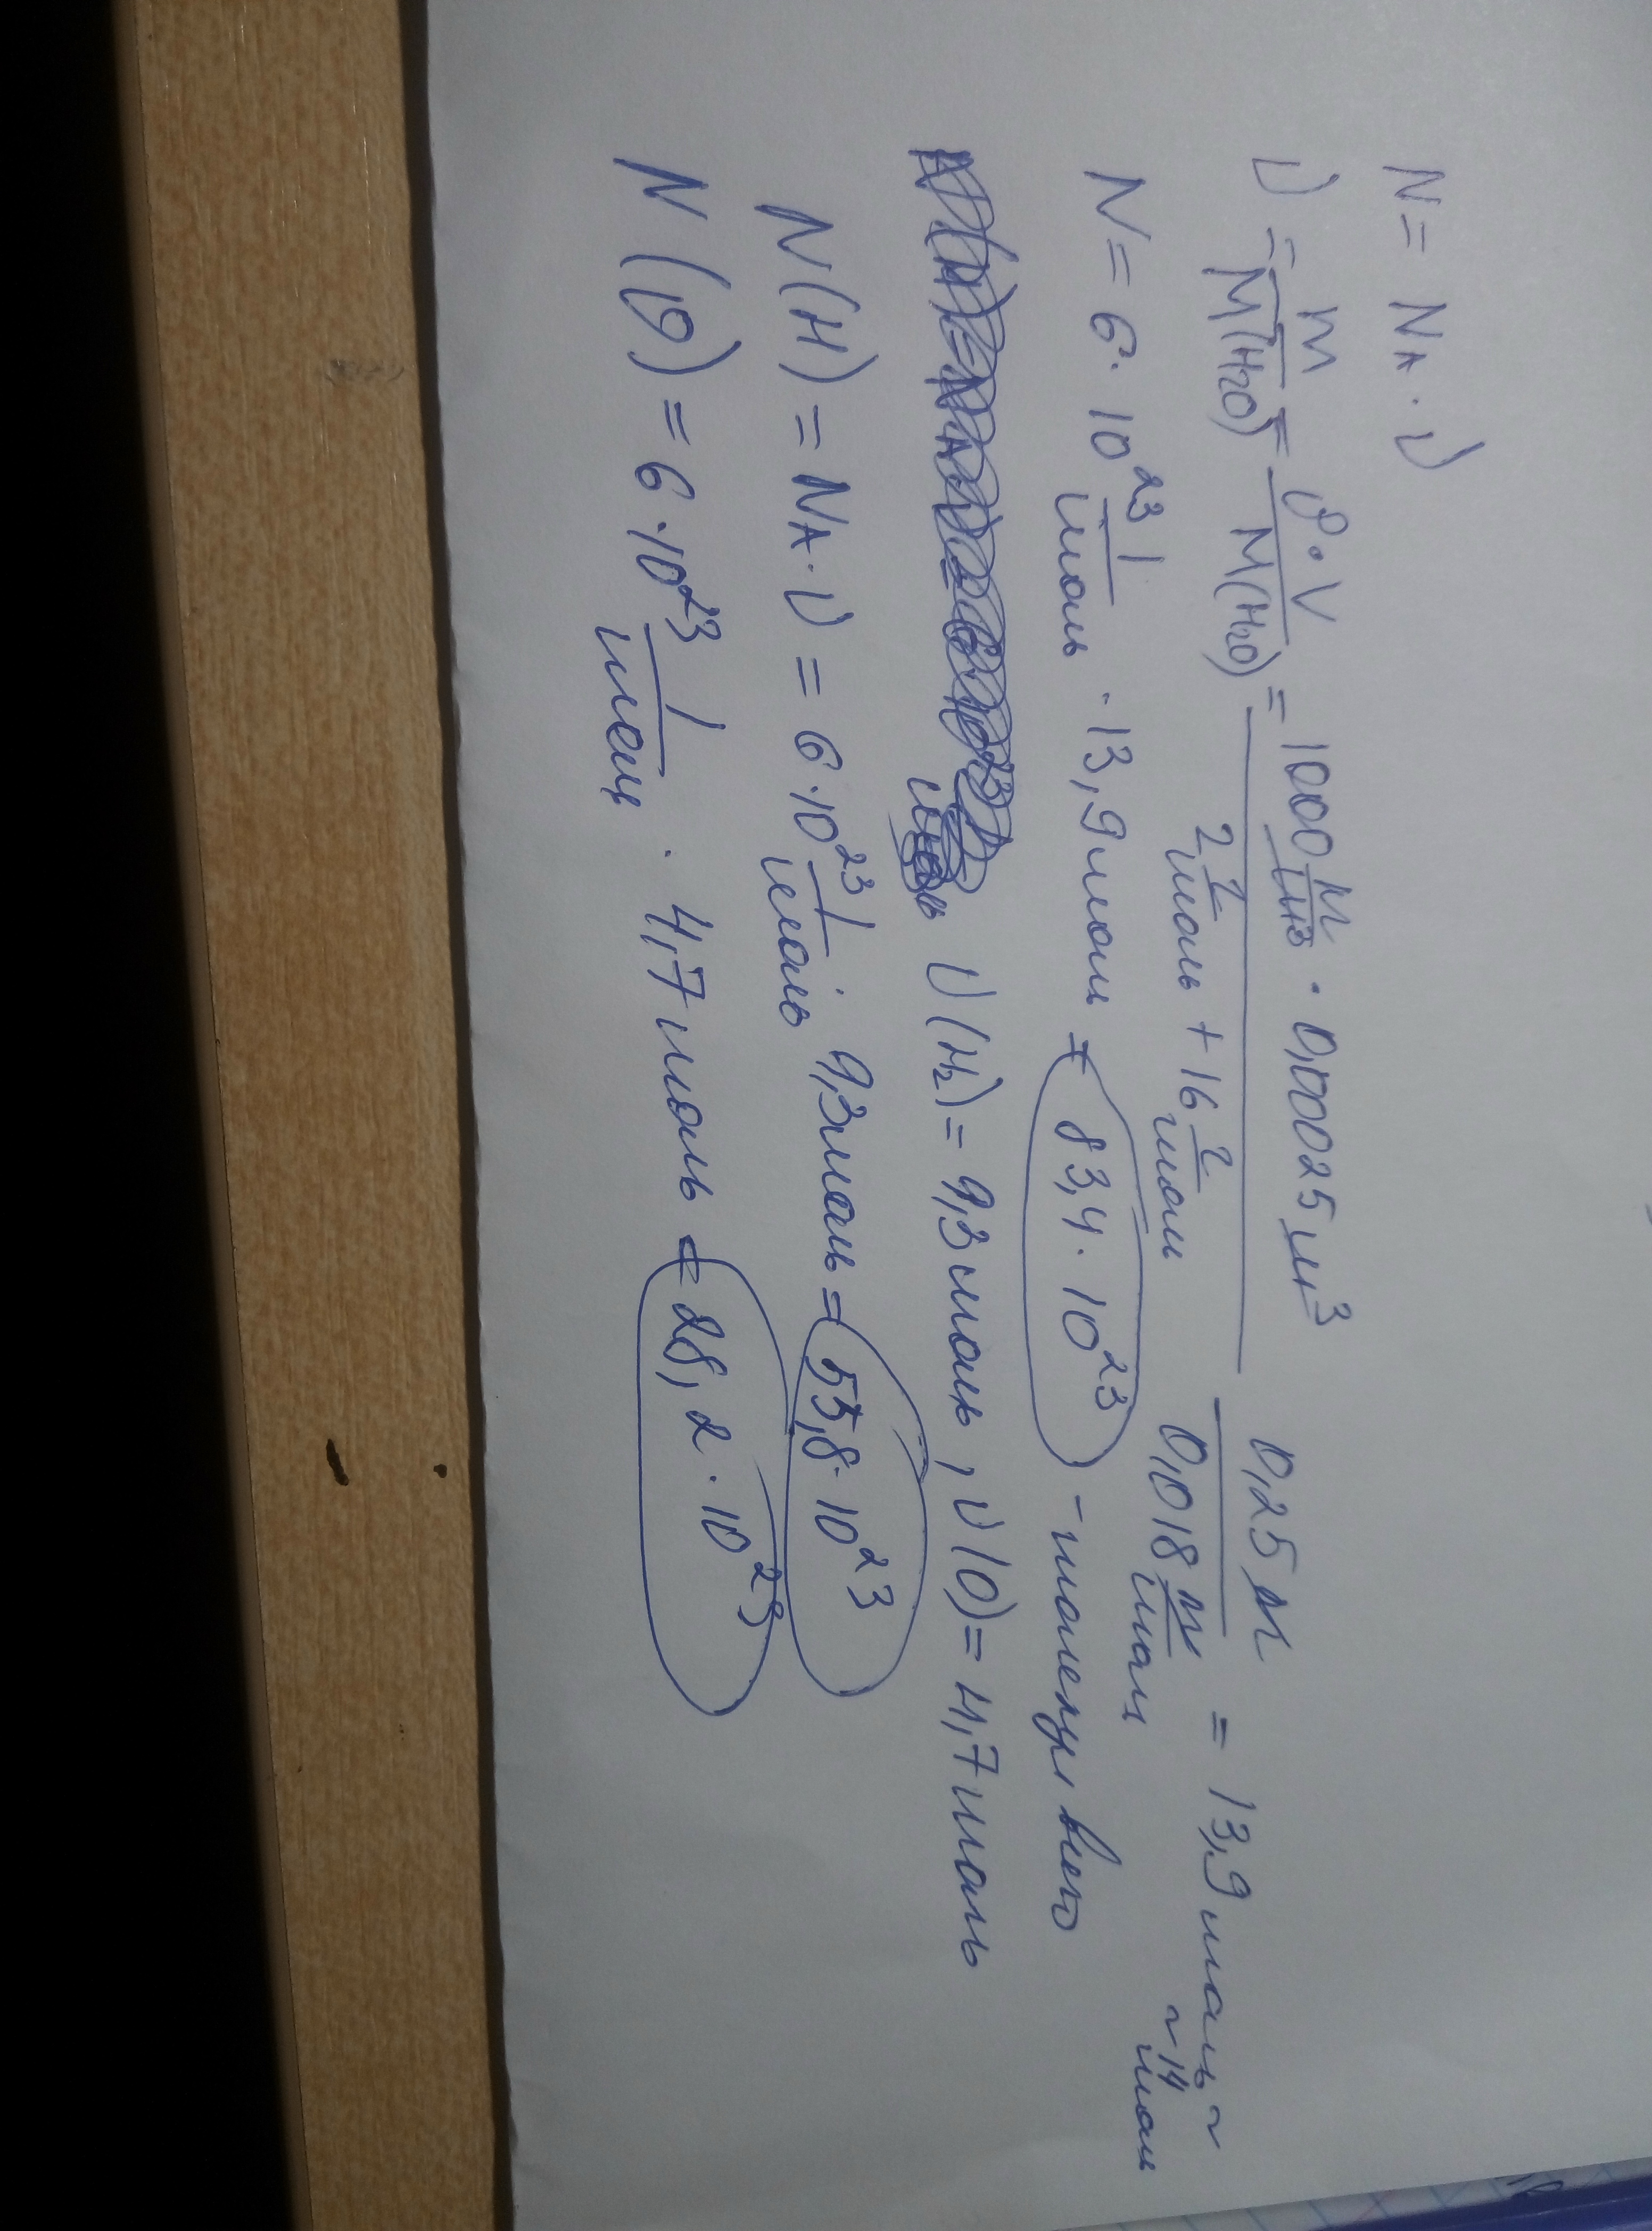 N = N_A · ν
ν = m / M(H₂O) = ρ·V / M(H₂O) = 1000 кг/м³ · 0,00025 м³ / 2 г/моль + 16 г/моль = 0,25 кг / 0,018 кг/моль = 13,9 моль ~ ~14 моль
N = 6 · 10²³ 1/моль · 13,9 моль = 83,4 · 10²³ - молекул всего
ν(H₂) = 9,3 моль, ν(O) = 4,7 моль
N(H) = N_A · ν = 6·10²³ 1/моль · 9,3 моль = 55,8·10²³
N(O) = 6·10²³ 1/моль · 4,7 моль = 28,2·10²³